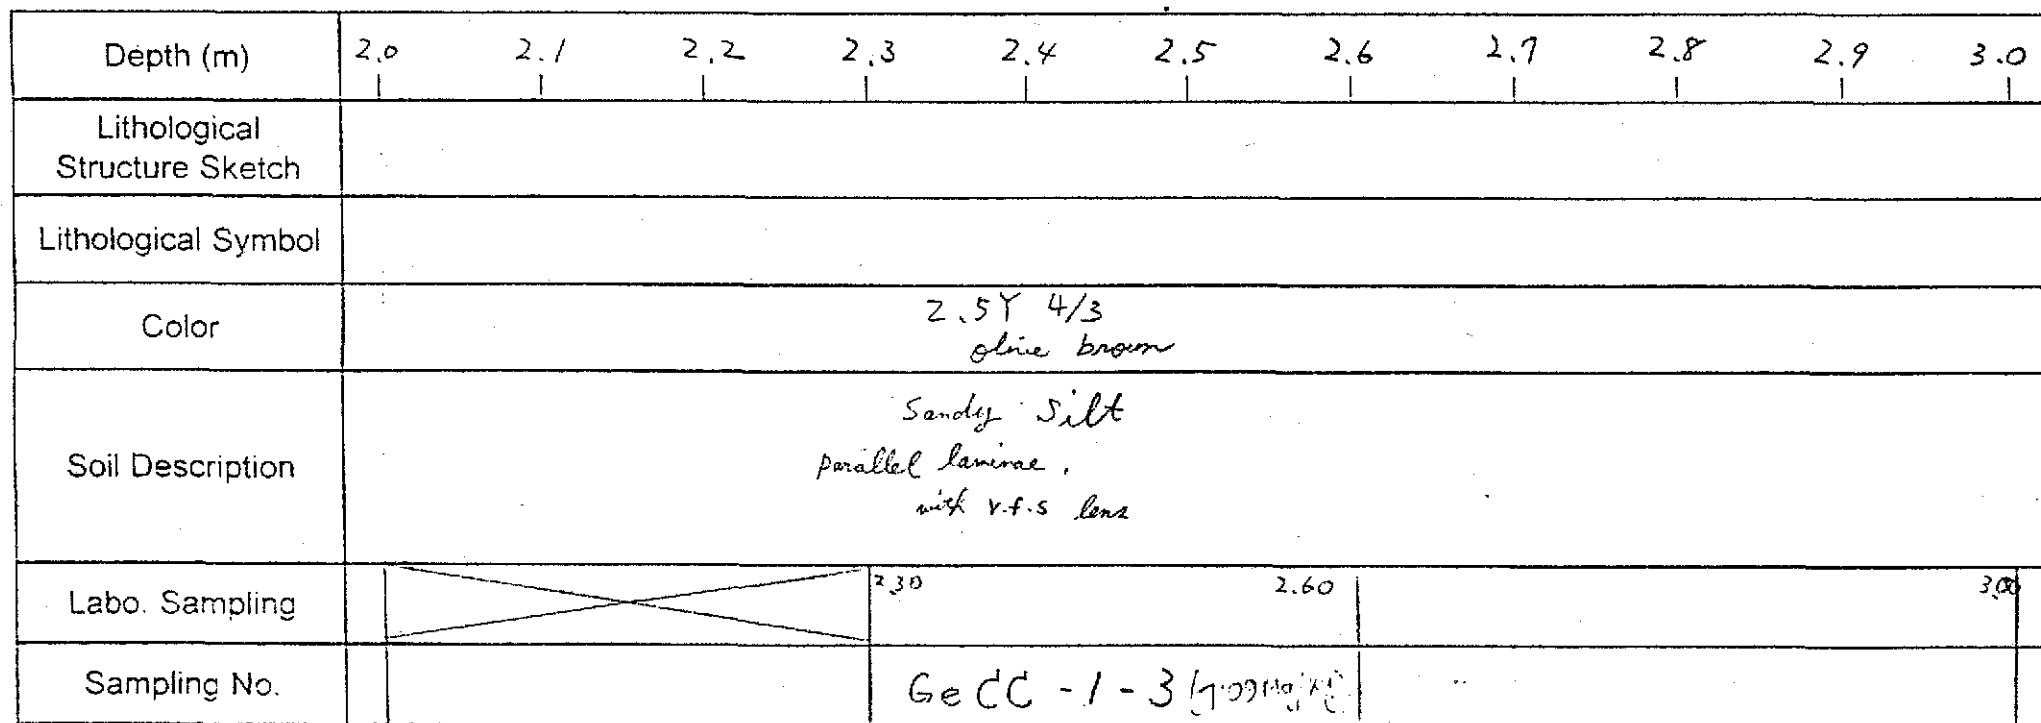 Depth (m) 2.0 2.1 2.2 2.3 2.4 2.5 2.6 2.7 2.8 2.9 3.0
Lithological
Structure Sketch
Lithological Symbol
Color 2.5Y 4/3
olive brown
Soil Description Sandy Silt
parallel laminae,
with v.f.s lens
Labo. Sampling 2.30 2.60 3.00
Sampling No. GeCC-1-3